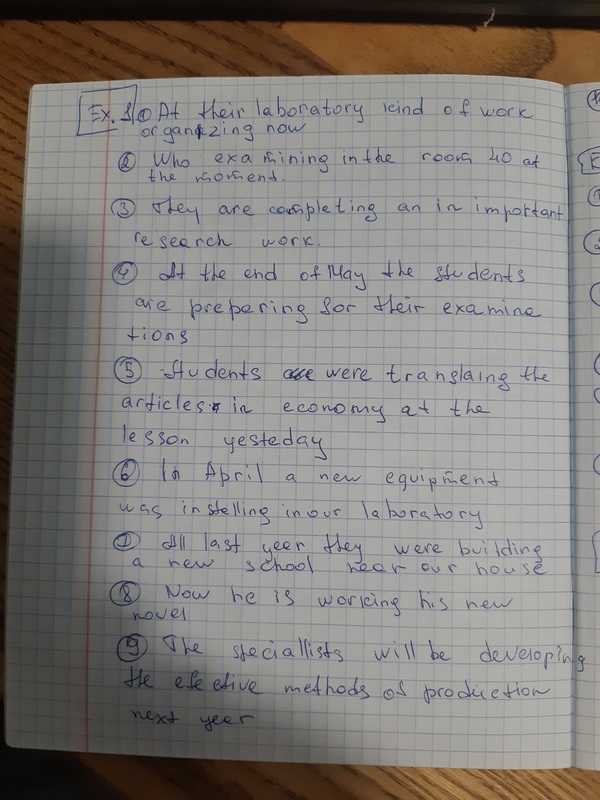 Ex. 1 ① At their laboratory kind of work
organizing now
② Who examining in the room 40 at
the moment.
③ They are completing an in important
research work.
④ At the end of May the students
are preparing for their examine
tions
⑤ Students were translaing the
articles in economy at the
lesson yesteday
⑥ In April a new equipment
was instelling in our laboratory
⑦ All last year they were building
a new school near our house
⑧ Now he is working his new
novel
⑨ The speciallists will be developing
the efective methods of production
next year